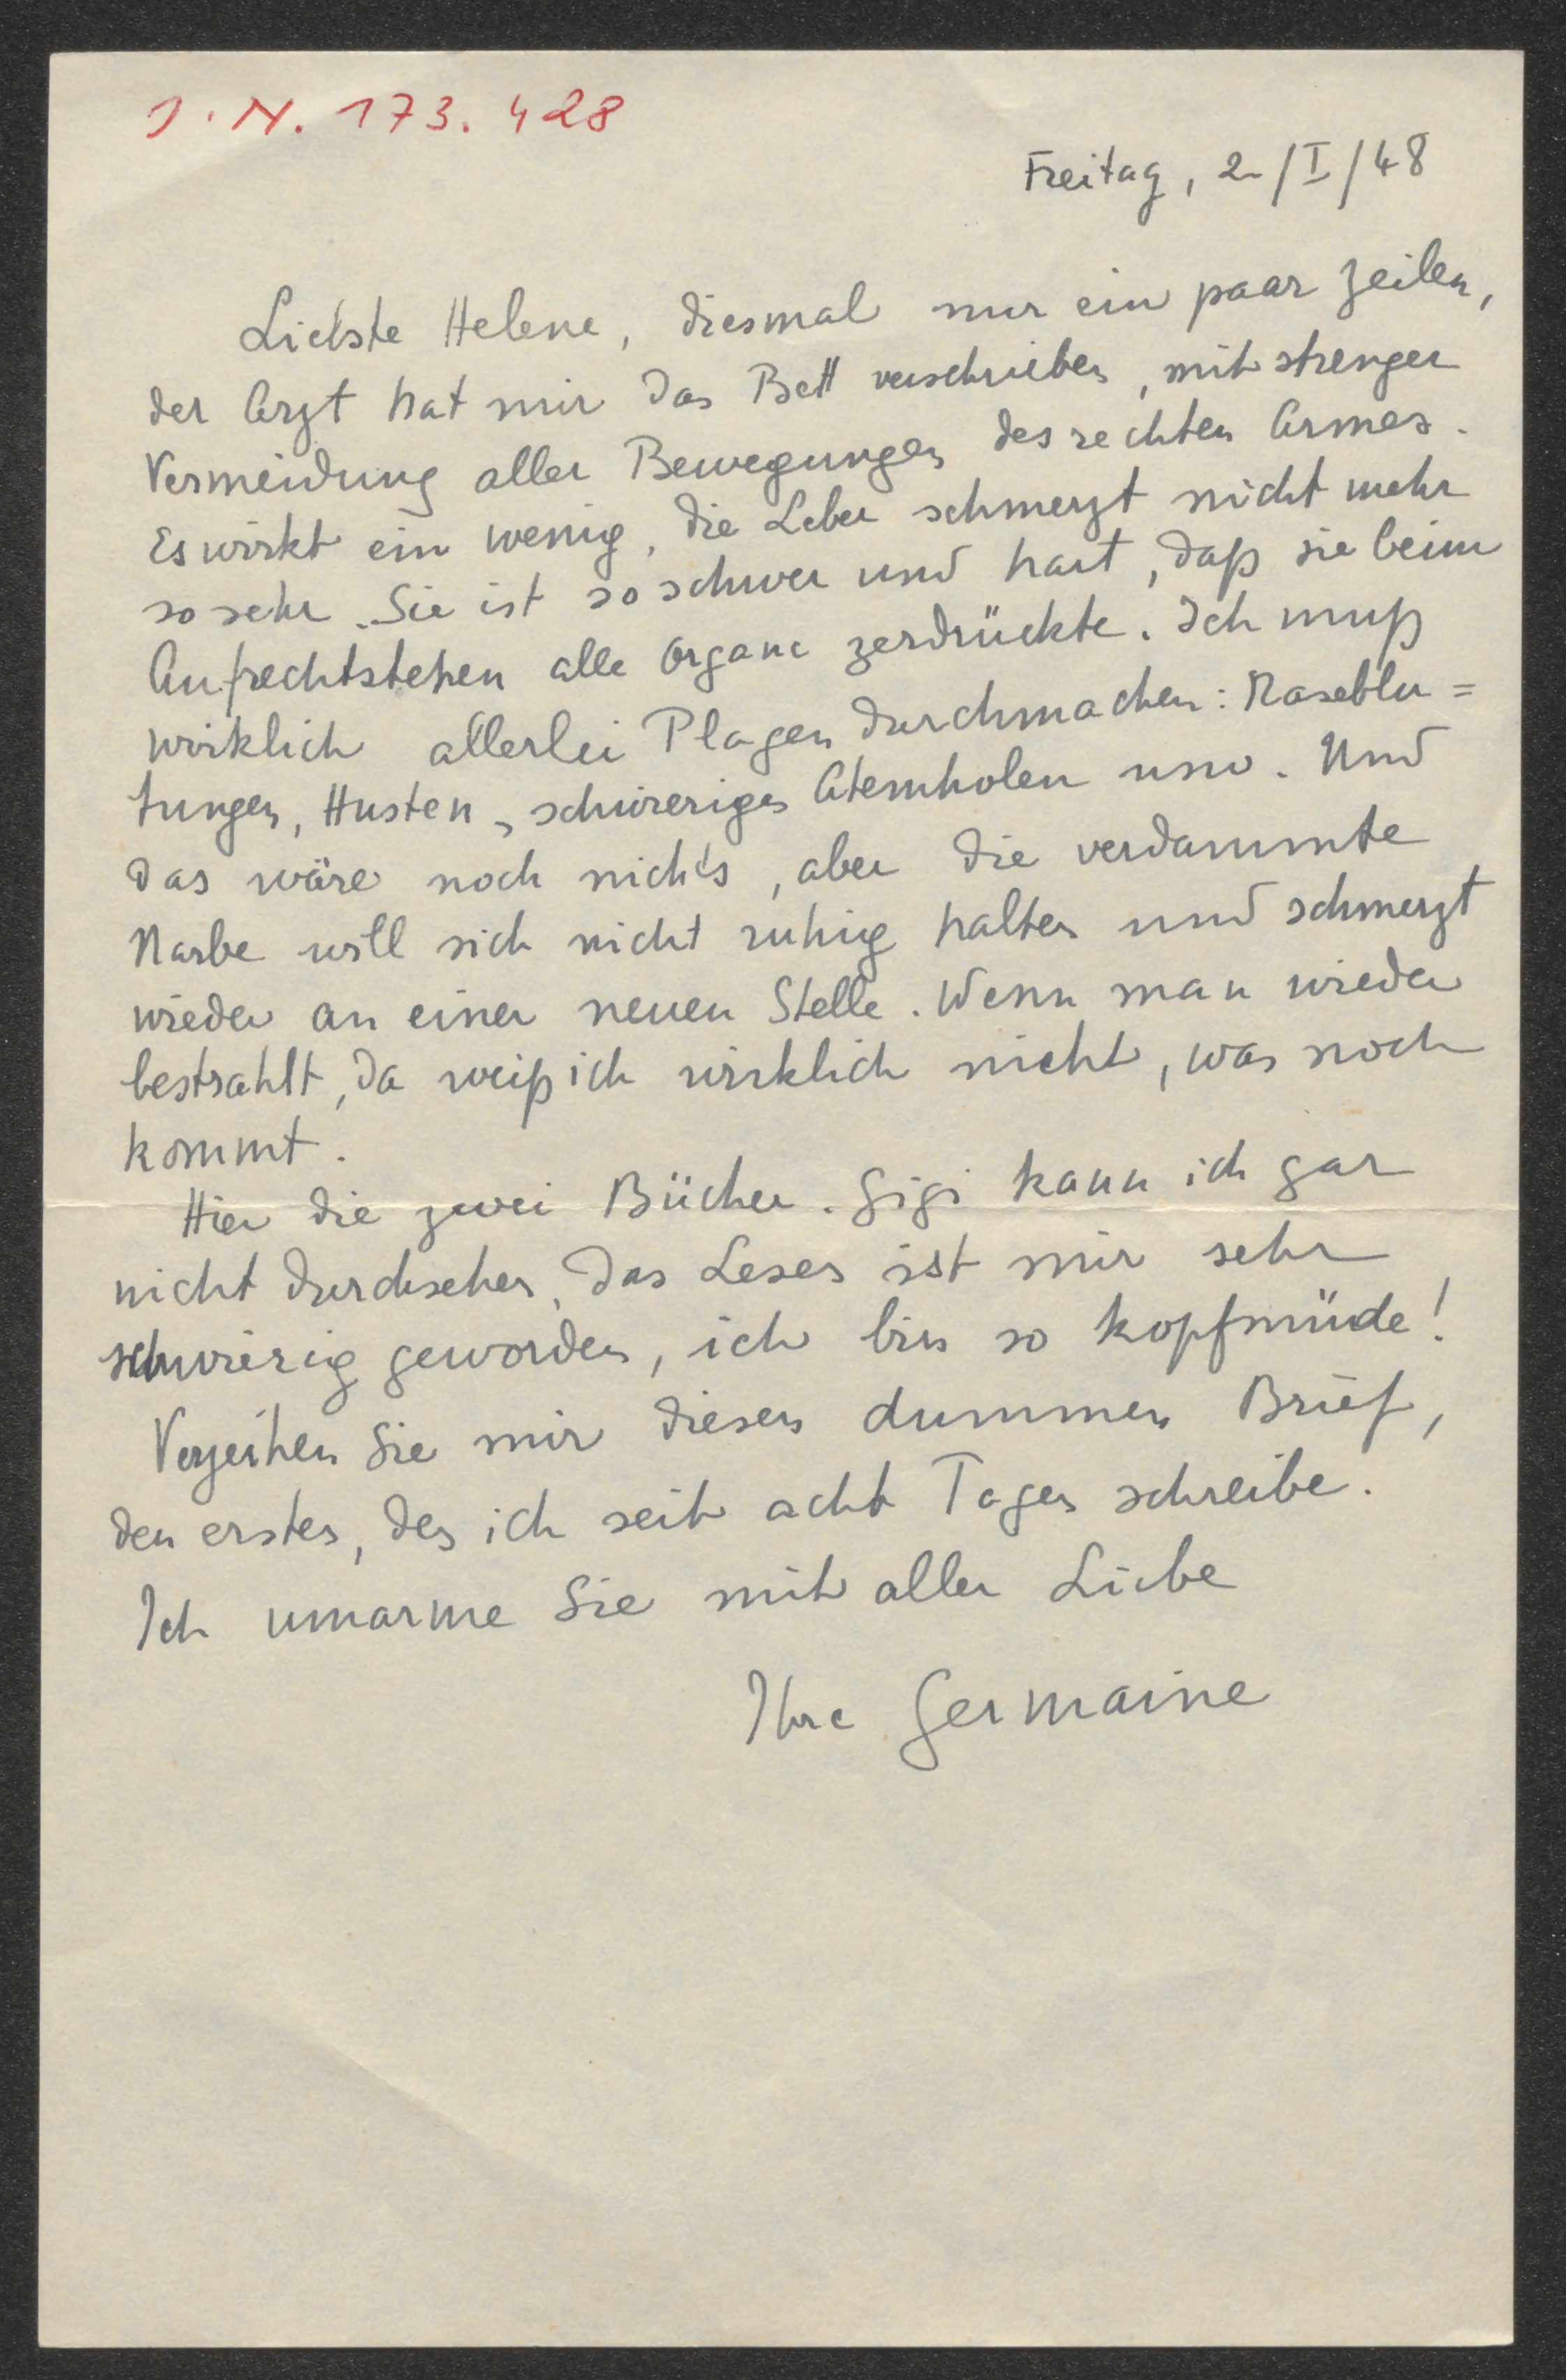 J. N. 173.428
Freitag, 2./I/48
Liebste Helene, diesmal nur ein paar Zeilen,
der Arzt hat mir das Bett verschrieben, mit strenger
Vermeidung aller Bewegungen des rechten Armes.
Es wirkt ein wenig, die Leber schmerzt nicht mehr
so sehr. Sie ist so schwer und hart, daß sie beim
Aufrechtstehen alle Organe zerdrückte. Ich muß
wirklich allerlei Plagen durchmachen: Naseblu=
tungen, Husten, schwieriges Atemholen usw. Und
das wäre noch nichts, aber die verdammte
Narbe will sich nicht ruhig halten und schmerzt
wieder an einer neuen Stelle. Wenn man wieder
bestrahlt, da weiß ich wirklich nicht, was noch
kommt.
Hier die zwei Bücher. Gigi kann ich gar
nicht durchsehen, das Lesen ist mir sehr
schwierig geworden, ich bin so kopfmüde!
Verzeihen Sie mir diesen dummen Brief,
den ersten, den ich seit acht Tagen schreibe.
Ich umarme Sie mit aller Liebe
Ihre Germaine